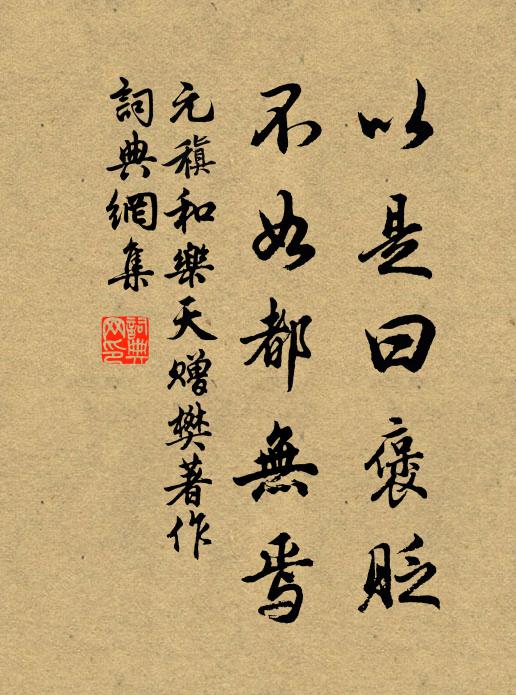 以是曰褒貶
不如都無焉
元稹和樂天贈樊著作
詞典網集
詞典网印